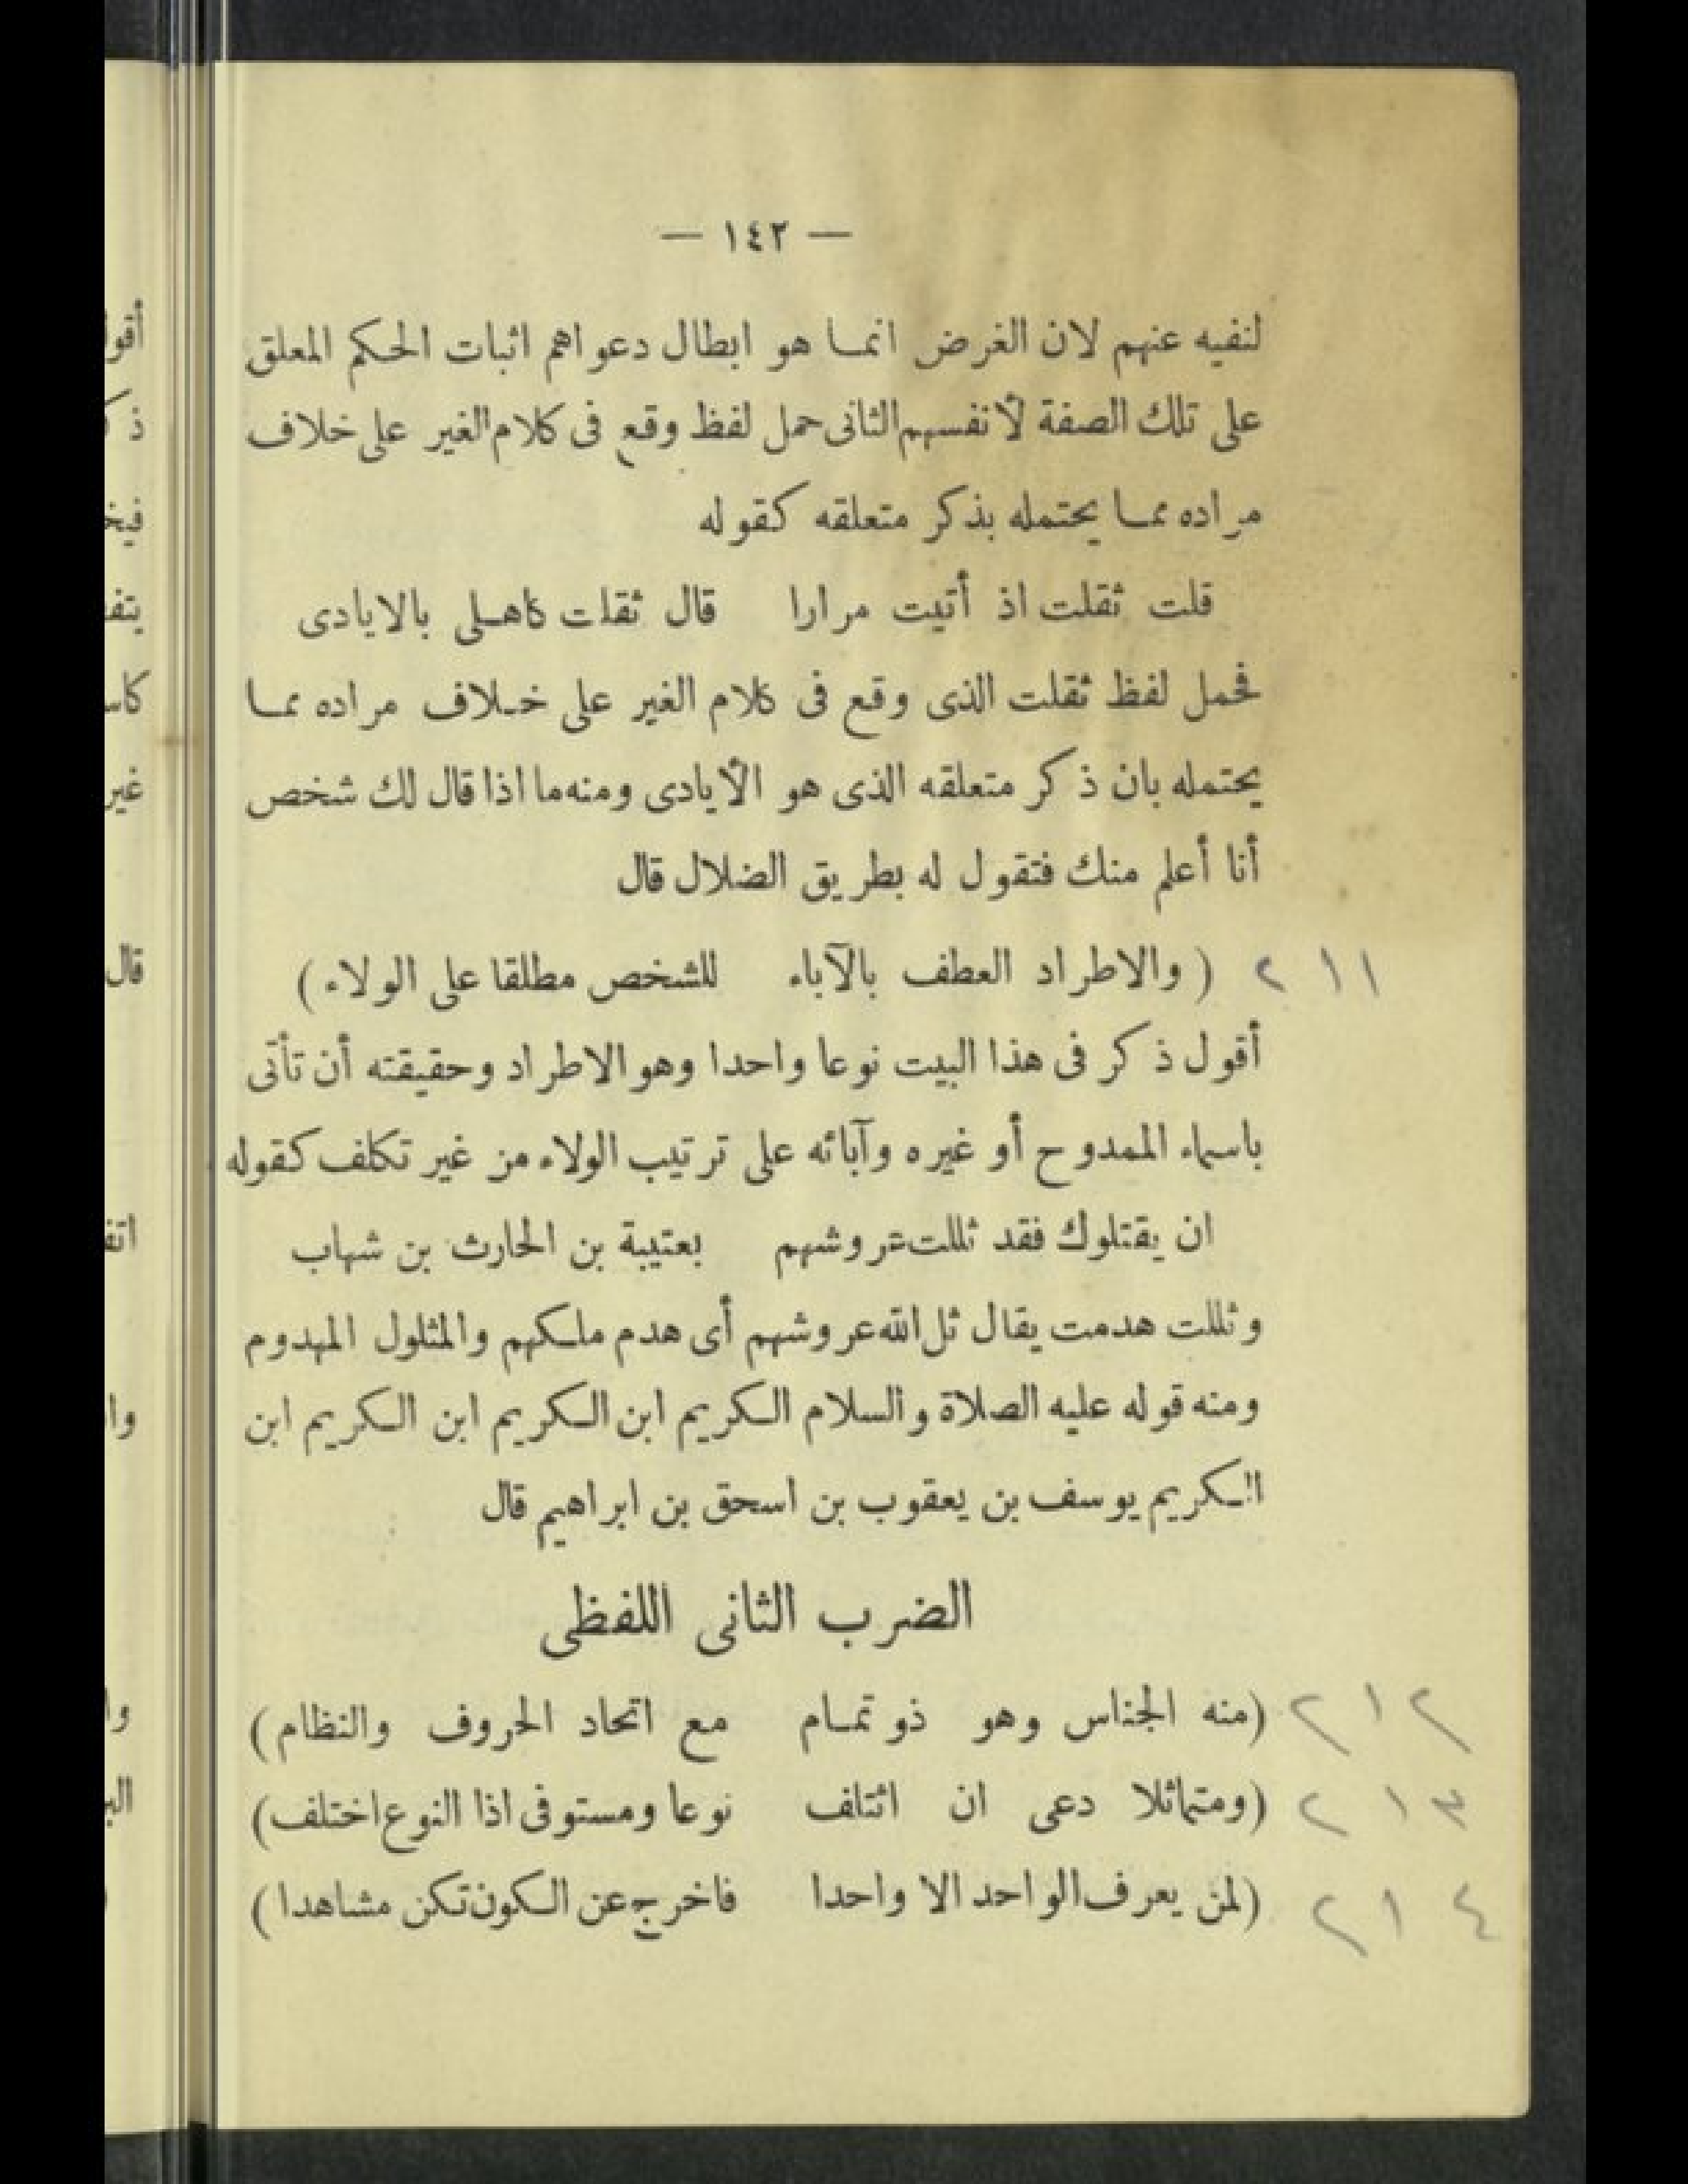 — ١٤٢ —
لنفيه عنهم لان الغرض انمـا هو ابطال دعواهم اثبات الحكم المعلق
على تلك الصفة لأنفسهم الثانى حمل لفظ وقع فى كلام الغير على خلاف
مراده ممـا يحتمله بذكر متعلقه كقوله
قلت ثقلت اذ أتيت مرارا قال ثقلت كاهلى بالايادى
فحمل لفظ ثقلت الذى وقع فى كلام الغير على خلاف مراده ممـا
يحتمله بان ذكر متعلقه الذى هو الأيادى ومنه ما اذا قال لك شخص
أنا أعلم منك فتقول له بطريق الضلال قال
٢١١ ( والاطراد العطف بالآباء للشخص مطلقا على الولاء )
أقول ذكر فى هذا البيت نوعا واحدا وهو الاطراد وحقيقته أن تأتى
باسماء الممدوح أو غيره وآبائه على ترتيب الولاء من غير تكلف كقوله
ان يقتلوك فقد ثللت عروشهم بعتيبة بن الحارث بن شهاب
وثللت هدمت يقال ثل الله عروشهم أى هدم ملكهم والمثلول المهدوم
ومنه قوله عليه الصلاة والسلام الكريم ابن الكريم ابن الكريم ابن
الكريم يوسف بن يعقوب بن اسحق بن ابراهيم قال
الضرب الثانى اللفظى
٢١٢ (منه الجناس وهو ذو تمـام مع اتحاد الحروف والنظام )
٢١٣ (ومتماثلا دعى ان ائتلف نوعا ومستوفى اذا النوع اختلف)
٢١٤ (لمن يعرف الواحد الا واحدا فاخرج عن الكون تكن مشاهدا )